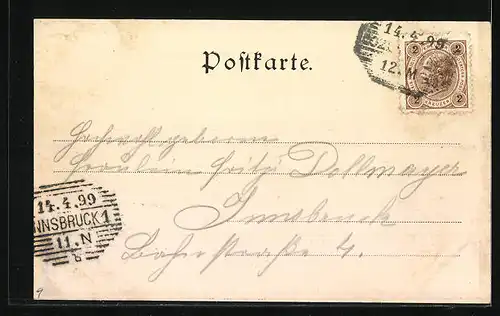 14.4.99
12.M
2 2
KREUZER
Postkarte.
Hochwohlgeboren
Fräulein Fritzi Dollmayer
Innsbruck
Bahnstraße 4.
14.4.99
INNSBRUCK 1
11.N
8
9